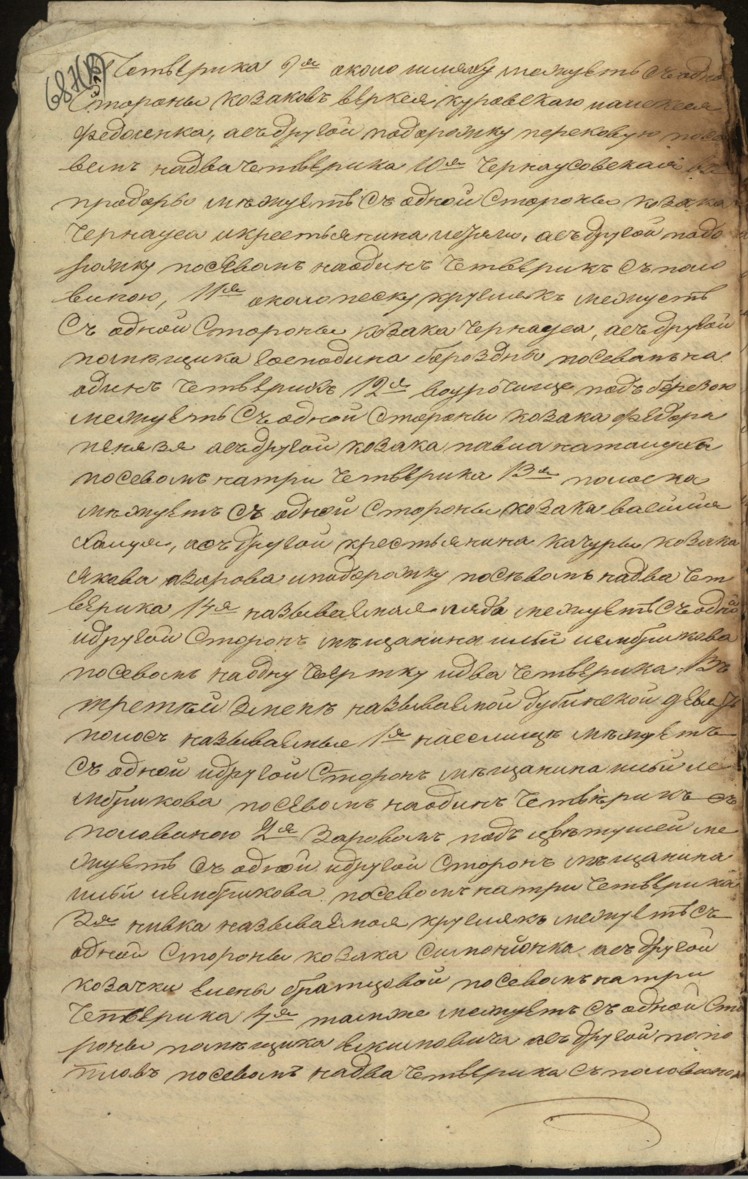 687
четверика 9я около шляху межуетъ съ одной
стороны козаковъ
Федосенка, а съ другой подорожку
вомъ на два четверика 10я Чернаусовская
межуетъ съ одной стороны козака
Чернауса и крестьянина а съ другой подо
рожку посевомъ на одинъ четверикъ съ поло
виною, 11я около песку круглякъ межуетъ
съ одной стороны козака Чернауса, а съ другой
помещика господина Бороздны посевомъ на
одинъ четверикъ 12я в урочище подъ березою
межуетъ съ одной стороны козака Федора
а съ другой козака Павла
посевомъ на три четверика 13я полоска
межуетъ съ одной стороны козака Василия
а съ другой крестьянина Качуры козака
Якова Азарова и подорожку посевомъ на два чет
верика 14я называемая ляда межуетъ съ одной
и другой сторонъ мещанина Ильи
посевомъ на одну чвертку и два четверика. Въ
третьей змене называемой Дубинской девять
полосъ называемые 1я на селище межуетъ
съ одной и другой сторонъ мещанина Ильи
посевомъ на одинъ четверикъ съ
половиною 2я за ровомъ подъ ме
жуетъ съ одной и другой сторонъ мещанина
Ильи посевомъ на три четверика
3я нивка называемая круглякъ межуетъ съ
одной стороны козака Симоненка а съ другой
козачки Елены Братцовой посевомъ на три
четверика 4я тамже межуетъ съ одной сто
роны помещика Екимовича а съ другой
посевомъ на два четверика съ половиною